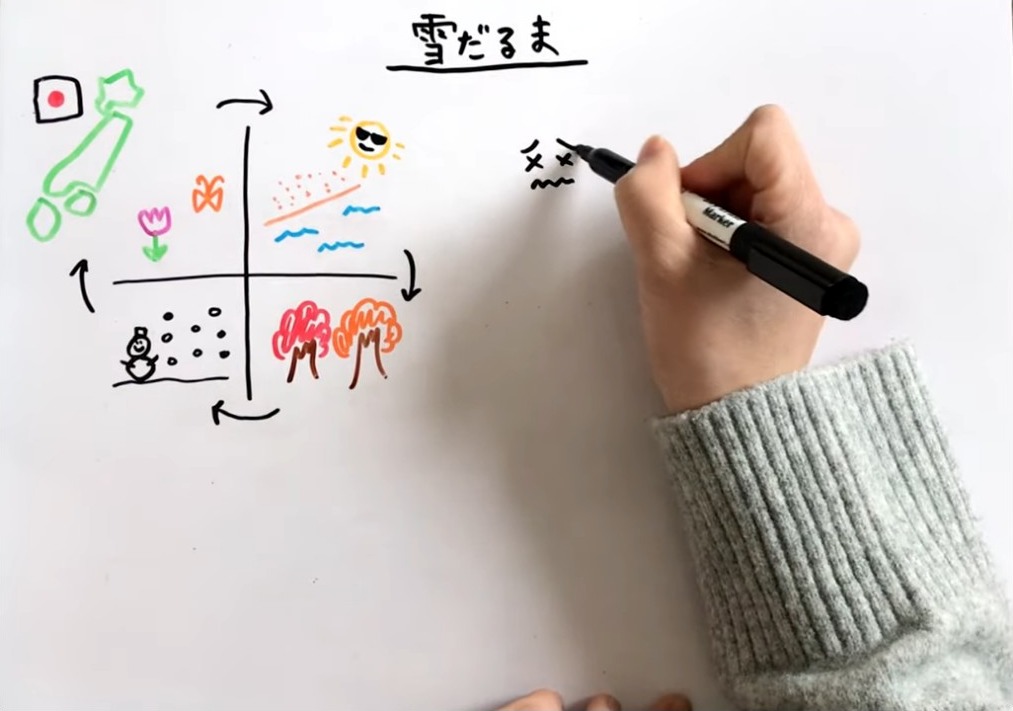 雪だるま
Marker